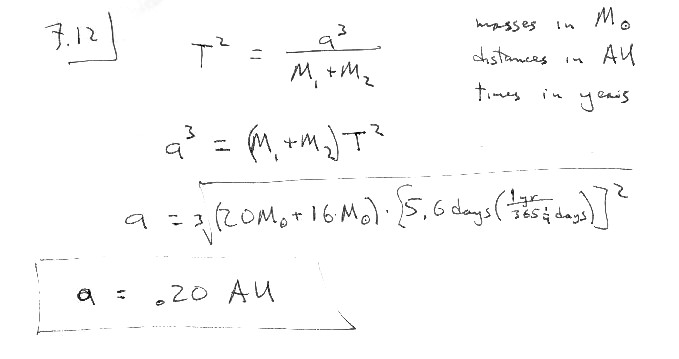 7.12
T² = a³ / (M₁ + M₂)
masses in M⊙
distances in AU
times in years
a³ = (M₁ + M₂) T²
a = ∛((20 M⊙ + 16 M⊙) · [5,6 days (1 yr / 365 ¼ days)]²)
a = .20 AU